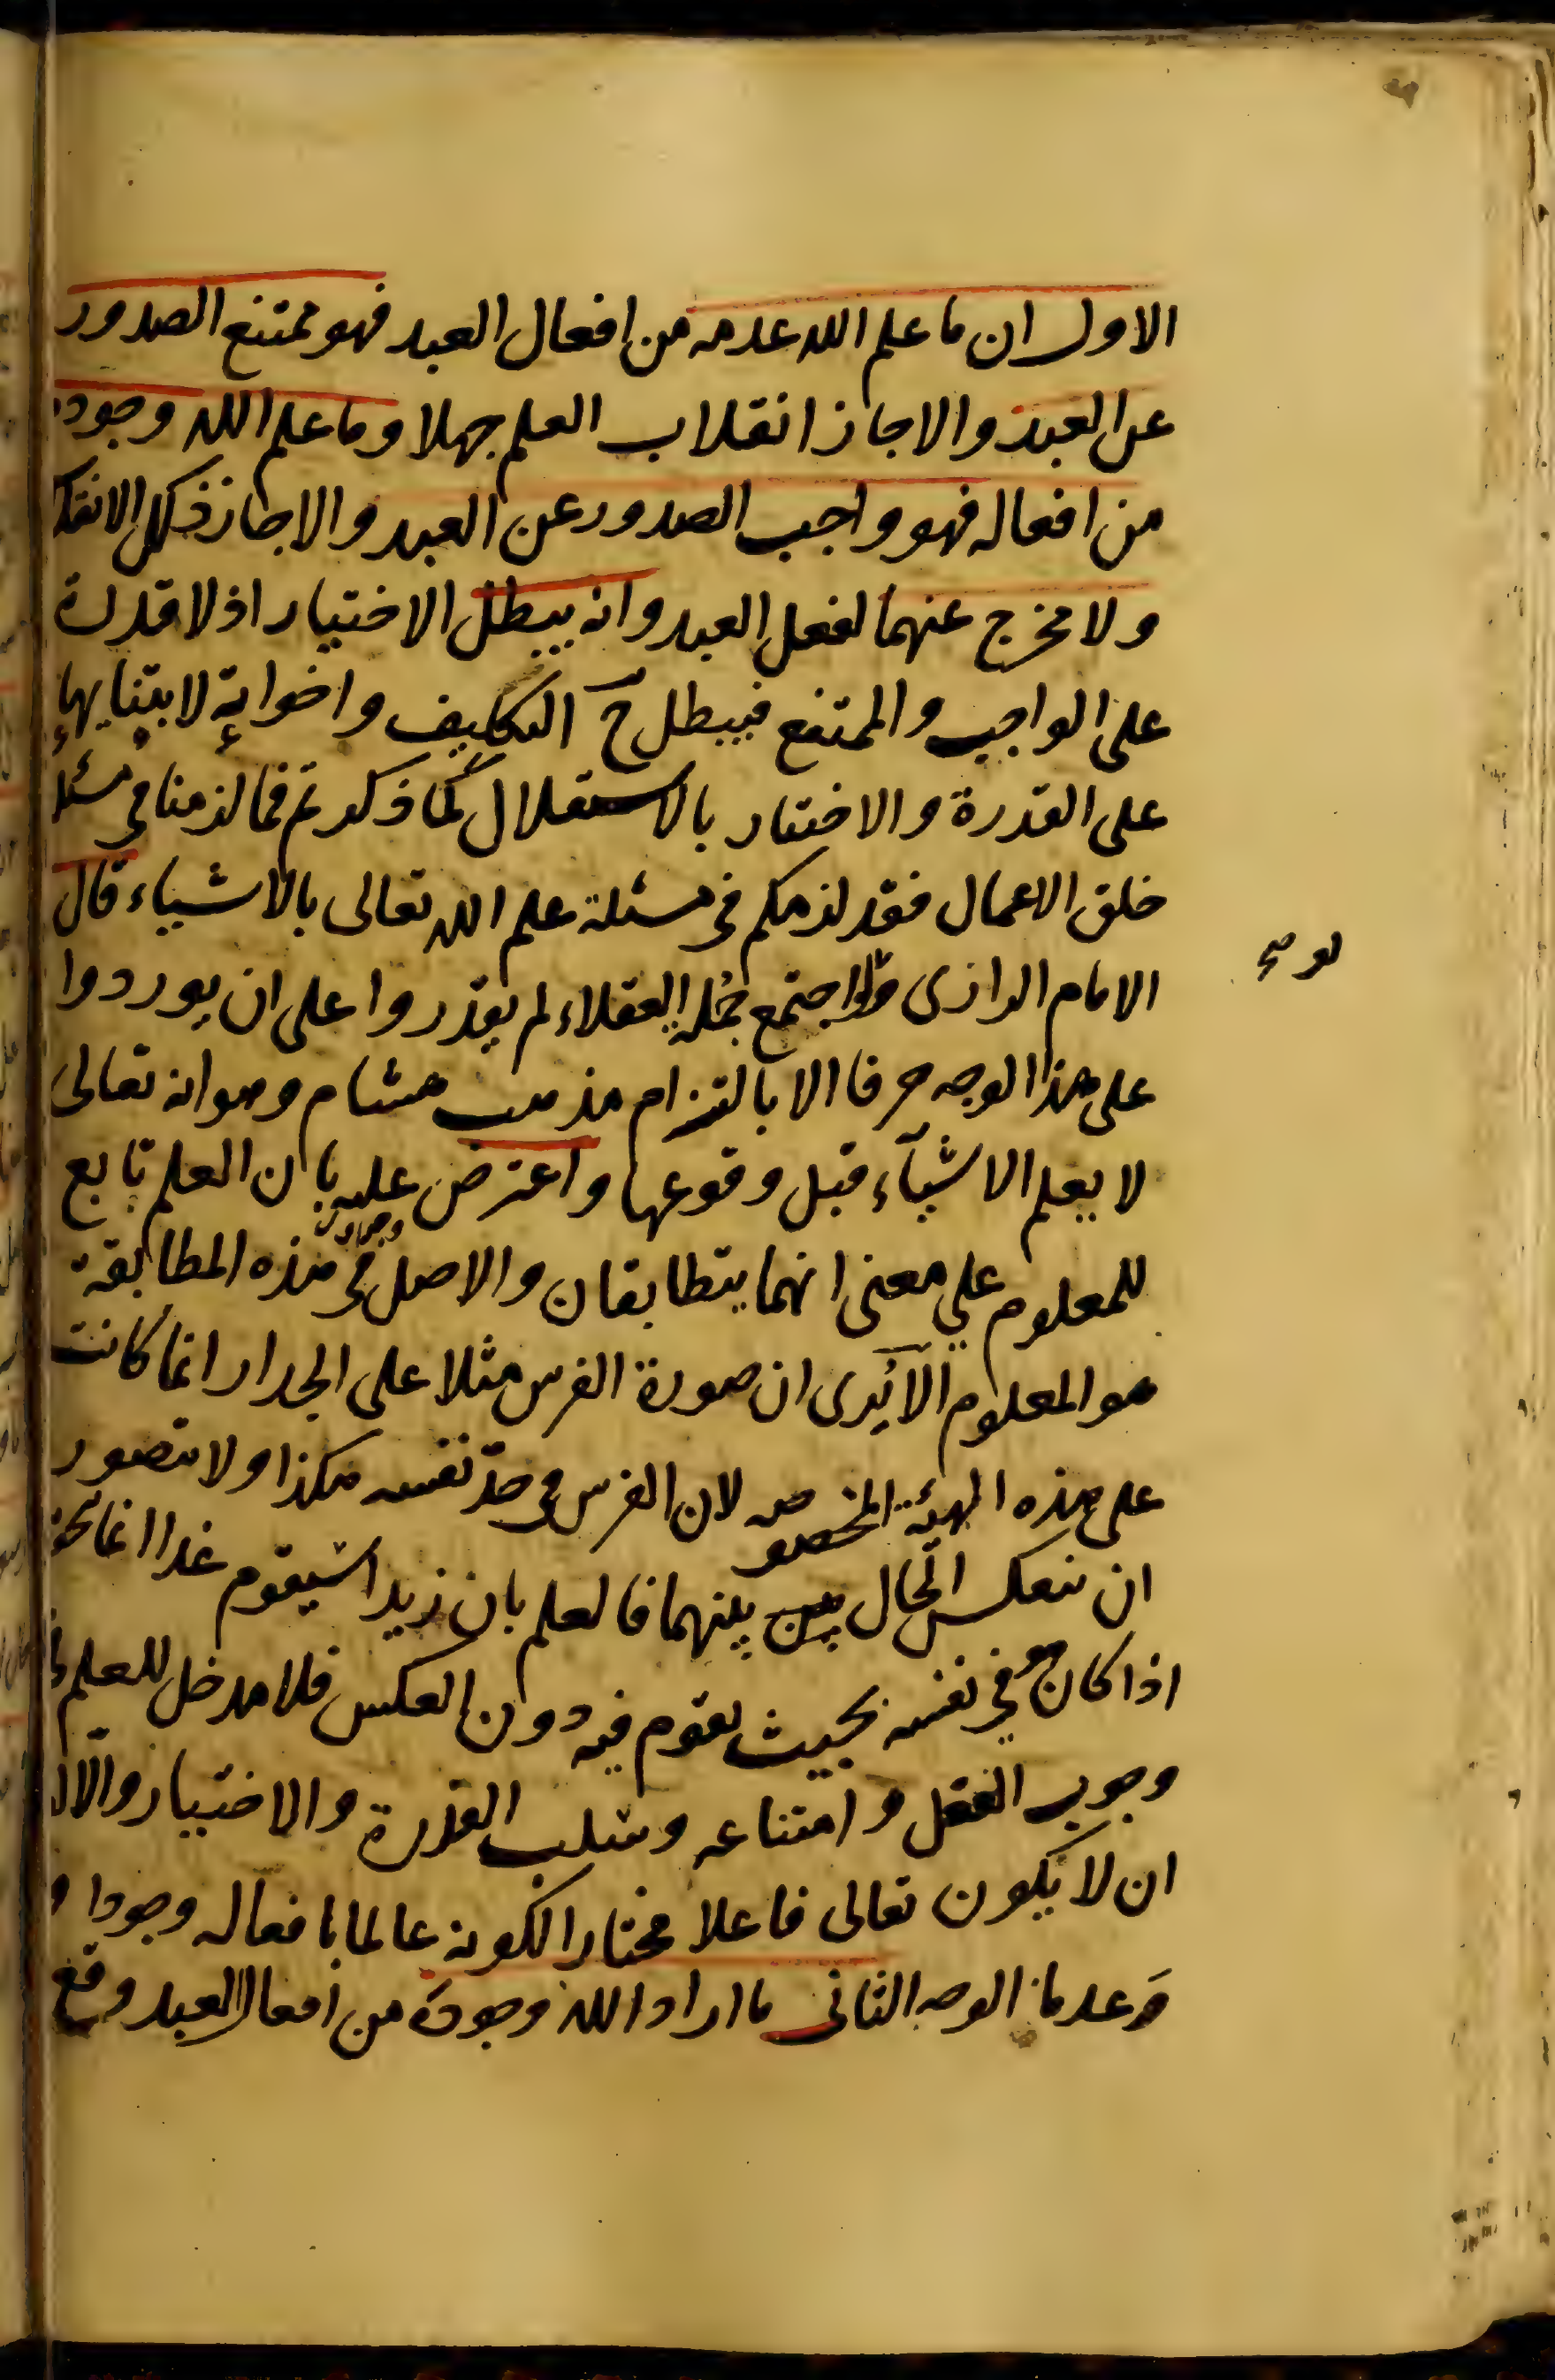 الاول ان ما علم الله عدمه من افعال العبد فهو ممتنع الصدور
عن العبد والا جاز انقلاب العلم جهلا وما علم الله وجوده
من افعاله فهو واجب الصدور عن العبد والا جاز ذلك الانقلا
ولا مخرج عنهما لفعل العبد وانه يبطل الاختيار اذ لا قدرة
على الواجب والممتنع فيبطل ح التكليف واخواته لابتنايها
على القدرة والاختيار بالاستقلال كما ذكرتم فما لزمنا في مسئلة
خلق الاعمال فقد لزمكم في مسئلة علم الله تعالى بالاشياء قال
الامام الرازى ولو اجتمع جملة العقلاء لم يقدروا على ان يوردوا
لو صح
على هذا الوجه حرفا الا بالتزام مذهب هشام وهو انه تعالى
لا يعلم الاشياء قبل وقوعها واعترض عليه بان العلم تابع
للمعلوم على معنى انهما يتطابقان والاصل في هذه المطابقة
هو المعلوم الا يرى ان صورة الفرس مثلا على الجدار انما كانت
على هذه الهيئة المخصوصه لان الفرس في حد نفسه هكذا ولا يتصور
ان ينعكس الحال بين بينهما فالعلم بان زيدا سيقوم غدا انما يتحقق
اذا كان هو في نفسه بحيث يقوم فيه دون العكس فلا مدخل للعلم في
وجوب الفعل وامتناعه وسلب القدرة والاختيار والا لزم
ان لا يكون تعالى فاعلا مختارا لكونه عالما بافعاله وجودا و
وعدما الوجه الثانى ما اراد الله وجوده من افعال العبد وقع